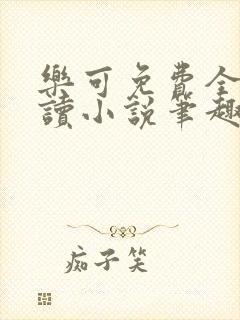 樂可免費全
讀小說筆趣
痴子笑